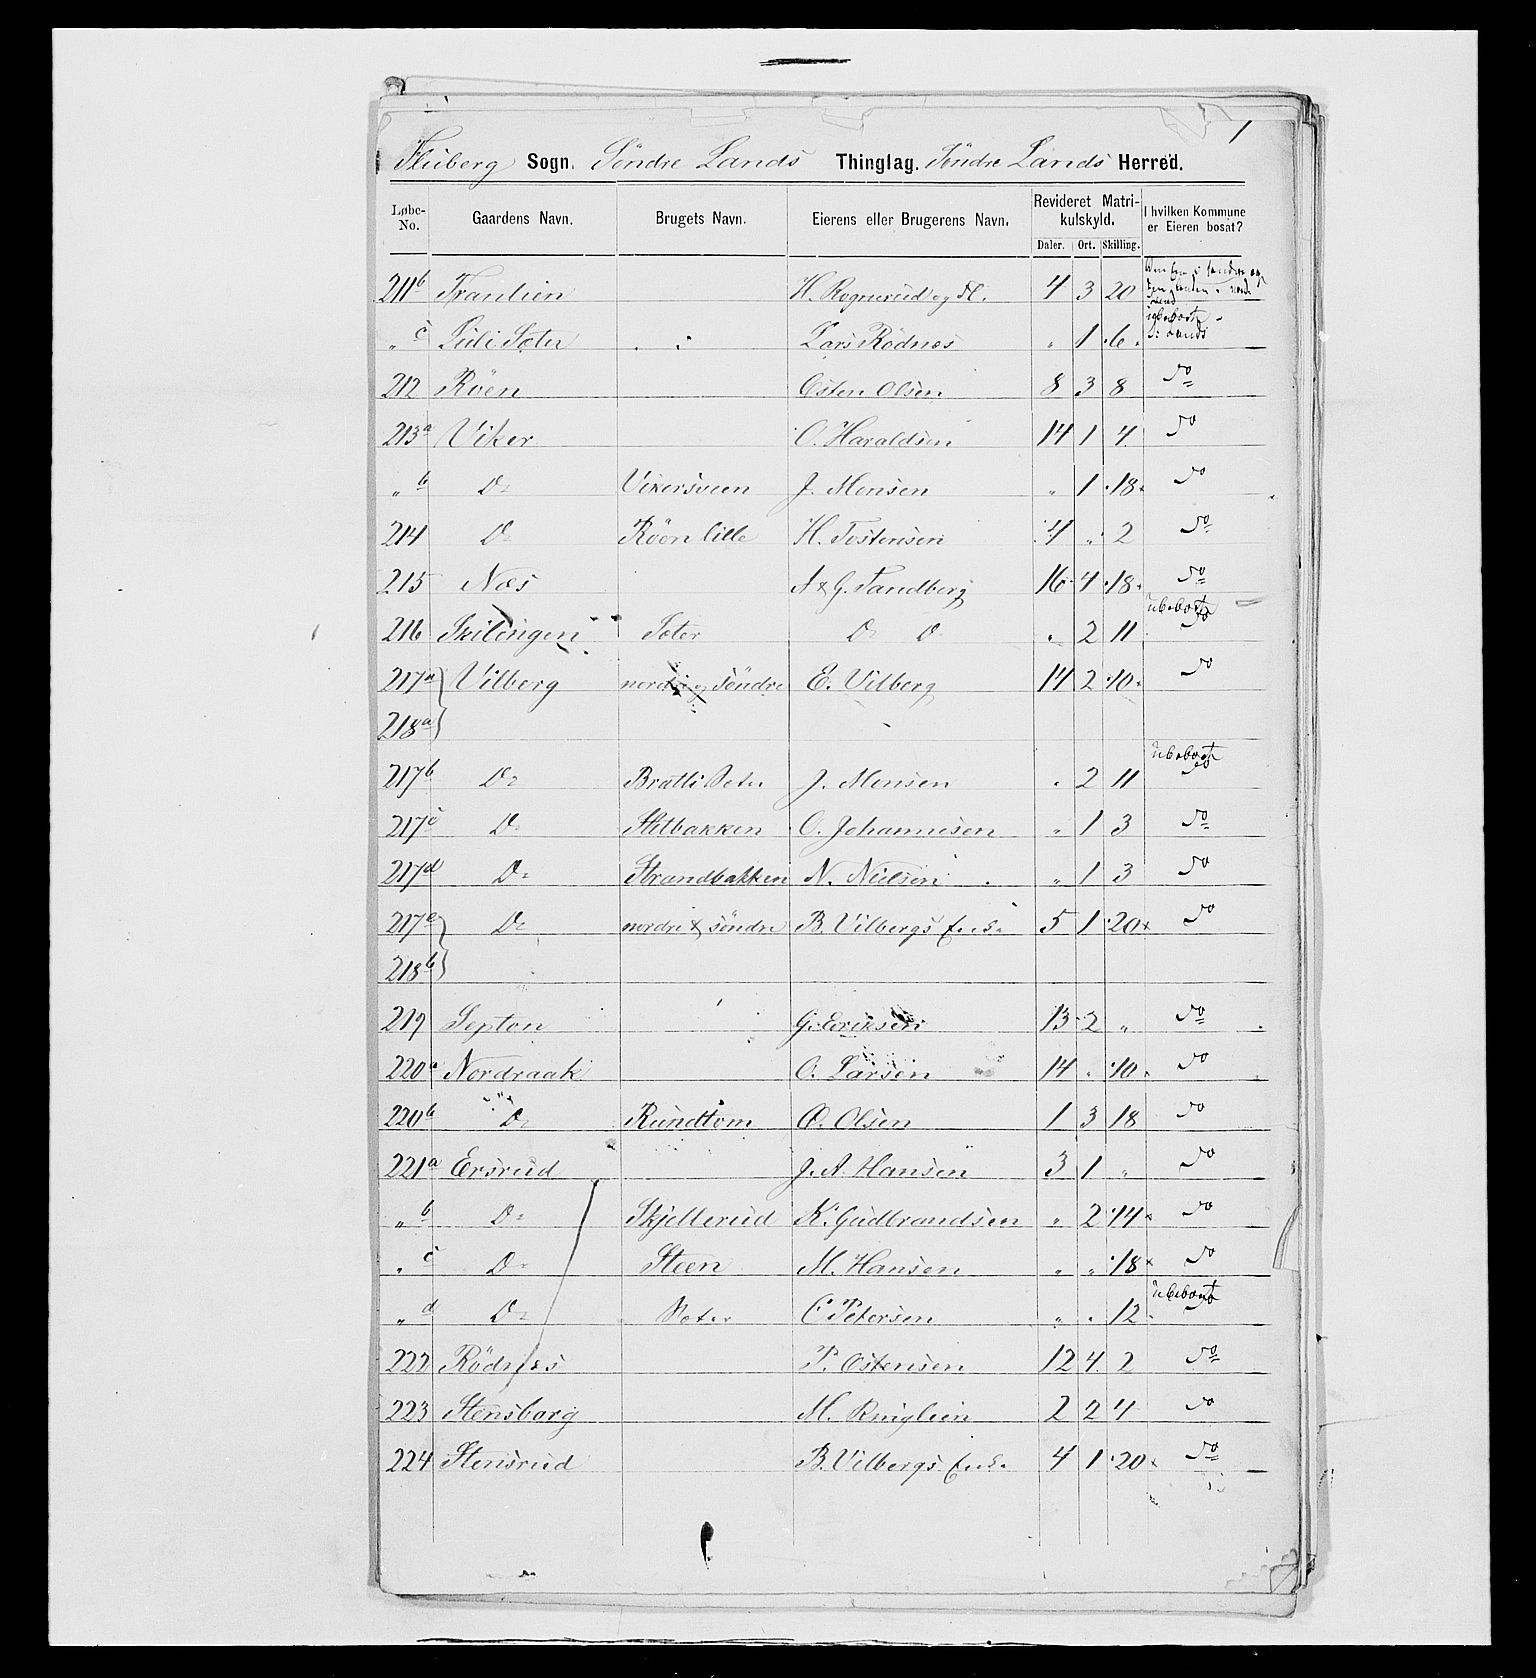 1
Fluberg Sogn. Söndre Lands Thinglag. Söndre Lands Herred.
Løbe-No. Gaardens Navn. Brugets Navn. Eierens eller Brugerens Navn. Revideret Matrikulskyld. I hvilken Kommune er Eieren bosat?
Daler. Ort. Skilling.
211b Tranlien H. Rognerud og fl. 4 3 20 i
„ c Lidi Sæter Lars Rödnæs „ 1 6 ubeboet S: Lands
212 Röen Østen Olsen 8 3 8 do
213a Viker O. Haraldsen 14 1 4 do
„ b Do Vikersveen J. Monsen „ 1 18 do
214 Do Röen lille H. Tostensen 4 „ 2 do
215 Næs A & G. Sandberg 16 4 18 do
216 Skilingen Sæter Do Do „ 2 11 ubeboet do
217a Vilberg nordre og söndre E. Vilberg 14 2 10 do
218a
217b Do Bratli Sæter J. Monsen „ 2 11 ubeboet do
217c Do Sletbakken O. Johannesen „ 1 3 do
217d Do Strandbakken N. Nielsen „ 1 3 do
217e Do nordre & söndre B. Vilbergs Enke 5 1 20 do
218b
219 Septon G. Eriksen 13 2 „ do
220a Nordraak O. Larsen 14 „ 10 do
220b Do Rundtom O. Olsen 1 3 18 do
221a Ersrud J. A. Hansen 3 1 „ do
„ b Do Skjellerud K. Gudbrandsen „ 2 14 do
„ c Do Steen M. Hansen „ „ 18 do
„ d Do Sæter C Petersen „ „ 12 ubeboet do
222 Rödnæs P. Ostensen 12 4 2 do
223 Stensborg M. Ringlien 2 2 4 do
224 Stensrud B. Vilbergs Enke 4 1 20 do